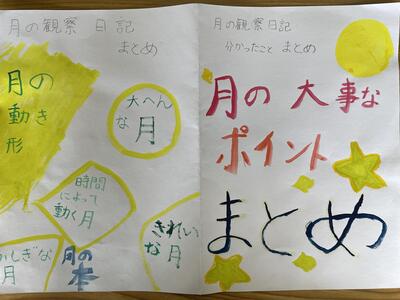 月の観察日記
まとめ
月の
動き
形
大へん
な月
時間
によって
動く月
きれい
な月
ふしぎな
月
月の
本
月の観察日記
分かったこと まとめ
月の大事な
ポイント
まとめ